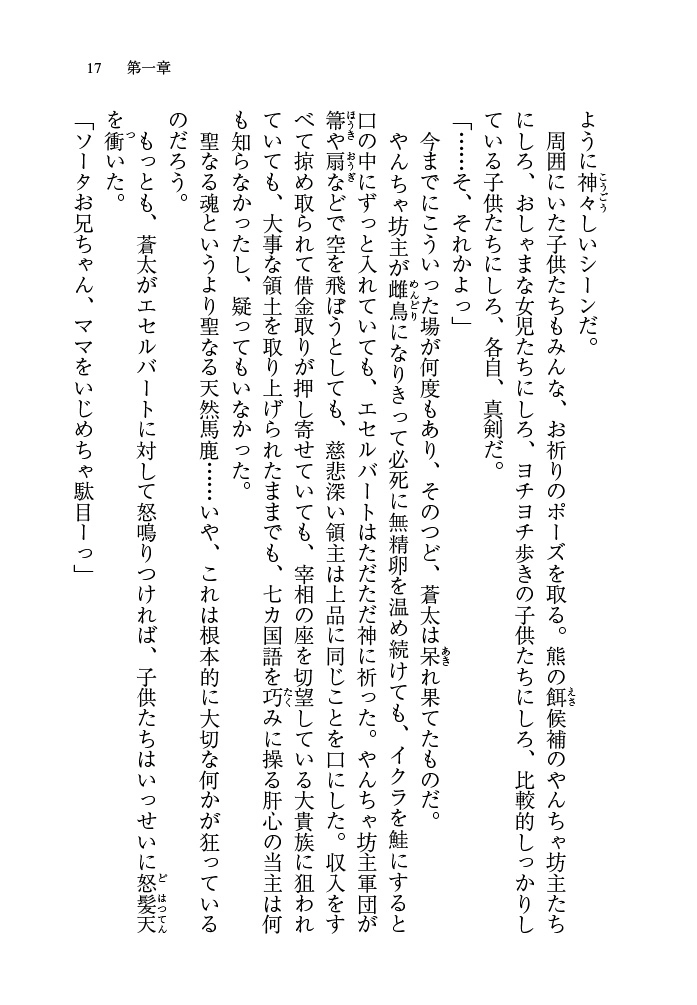 17　第一章
ように神々しいシーンだ。
　周囲にいた子供たちもみんな、お祈りのポーズを取る。熊の餌候補のやんちゃ坊主たち
にしろ、おしゃまな女児たちにしろ、ヨチヨチ歩きの子供たちにしろ、比較的しっかりし
ている子供たちにしろ、各自、真剣だ。
「……そ、それかよっ」
　今までにこういった場が何度もあり、そのつど、蒼太は呆れ果てたものだ。
　やんちゃ坊主が雌鳥になりきって必死に無精卵を温め続けても、イクラを鮭にすると
口の中にずっと入れていても、エセルバートはただただ神に祈った。やんちゃ坊主軍団が
箒や扇などで空を飛ぼうとしても、慈悲深い領主は上品に同じことを口にした。収入をす
べて掠め取られて借金取りが押し寄せていても、宰相の座を切望している大貴族に狙われ
ていても、大事な領土を取り上げられたままでも、七カ国語を巧みに操る肝心の当主は何
も知らなかったし、疑ってもいなかった。
　聖なる魂というより聖なる天然馬鹿……いや、これは根本的に大切な何かが狂っている
のだろう。
　もっとも、蒼太がエセルバートに対して怒鳴りつければ、子供たちはいっせいに怒髪天
を衝いた。
「ソータお兄ちゃん、ママをいじめちゃ駄目ーっ」